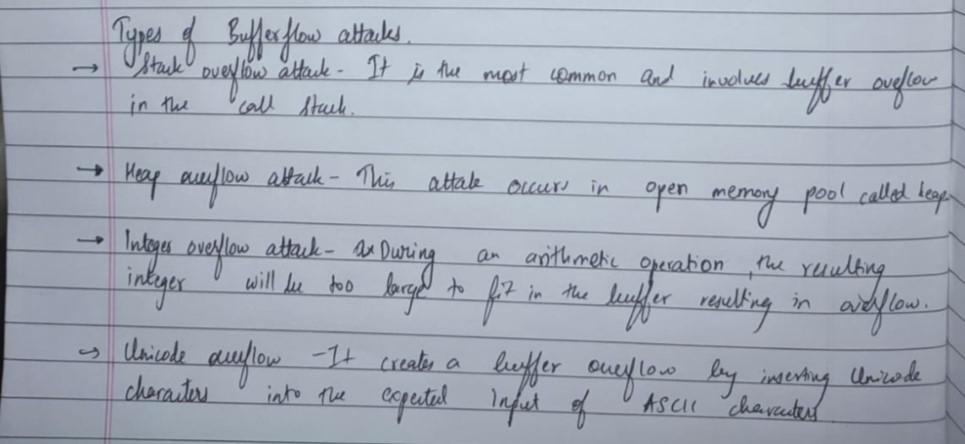 Types of Bufferflow attacks.
→ Stack overflow attack - It is the most common and involves buffer overflow
in the call stack.
→ Heap overflow attack - This attack occurs in open memory pool called heap
→ Integer overflow attack - During an arithmetic operation, the resulting
integer will be too large to fit in the buffer resulting in overflow.
→ Unicode overflow - It creates a buffer overflow by inserting Unicode
characters into the expected input of ASCII characters